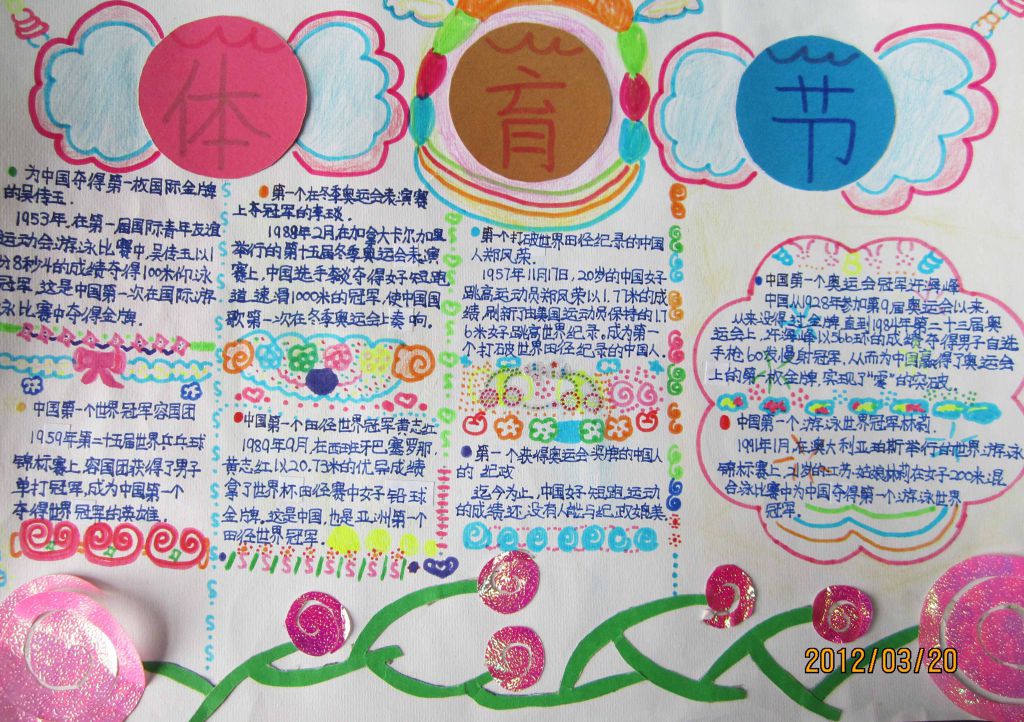 体 育 节
为中国夺得第一枚国际金牌
的吴传玉.
1953年,在第一届国际青年友谊
运动会游泳比赛中,吴传玉以1
分8秒4的成绩夺得100米仰泳
冠军,这是中国第一次在国际游
泳比赛中夺得金牌.
中国第一个世界冠军容国团
1959年第二十五届世界乒乓球
锦标赛上,容国团获得了男子
单打冠军,成为中国第一个
夺得世界冠军的英雄.
第一个在冬季奥运会表演赛
上夺冠军的李琰.
1989年2月,在加拿大卡尔加里
举行的第十五届冬季奥运会表演
赛上,中国选手李琰夺得女子短跑
道速滑1000米的冠军,使中国国
歌第一次在冬季奥运会上奏响.
中国第一个田径世界冠军黄志红
1989年9月,在西班牙巴塞罗那,
黄志红以20.73米的优异成绩
拿了世界杯田径赛中女子铅球
金牌.这是中国,也是亚洲第一个
田径世界冠军.
第一个打破世界田径纪录的中国
人郑凤荣.
1957年11月17日,20岁的中国女子
跳高运动员郑凤荣以1.77米的成
绩,刷新了由美国运动员保持的1.76
米女子跳高世界纪录,成为第一
个打破世界田径纪录的中国人.
第一个获得奥运会奖牌的中国人
的 纪政
迄今为止,中国女子短跑运动
的成绩还没有人能与纪政媲美.
中国第一个奥运会冠军许海峰
中国从1928年参加第9届奥运会以来,
从来没得过金牌,直到1984年第二十三届奥
运会上,许海峰以566环的成绩夺得男子自选
手枪60发慢射冠军,从而为中国赢得了奥运会
上的第一枚金牌,实现了"零"的突破.
中国第一个游泳世界冠军林莉.
1991年1月,在澳大利亚珀斯举行的世界游泳
锦标赛上,岁的江苏姑娘林莉在女子200米混
合泳比赛中为中国夺得第一个游泳世界
冠军.
2012/03/20